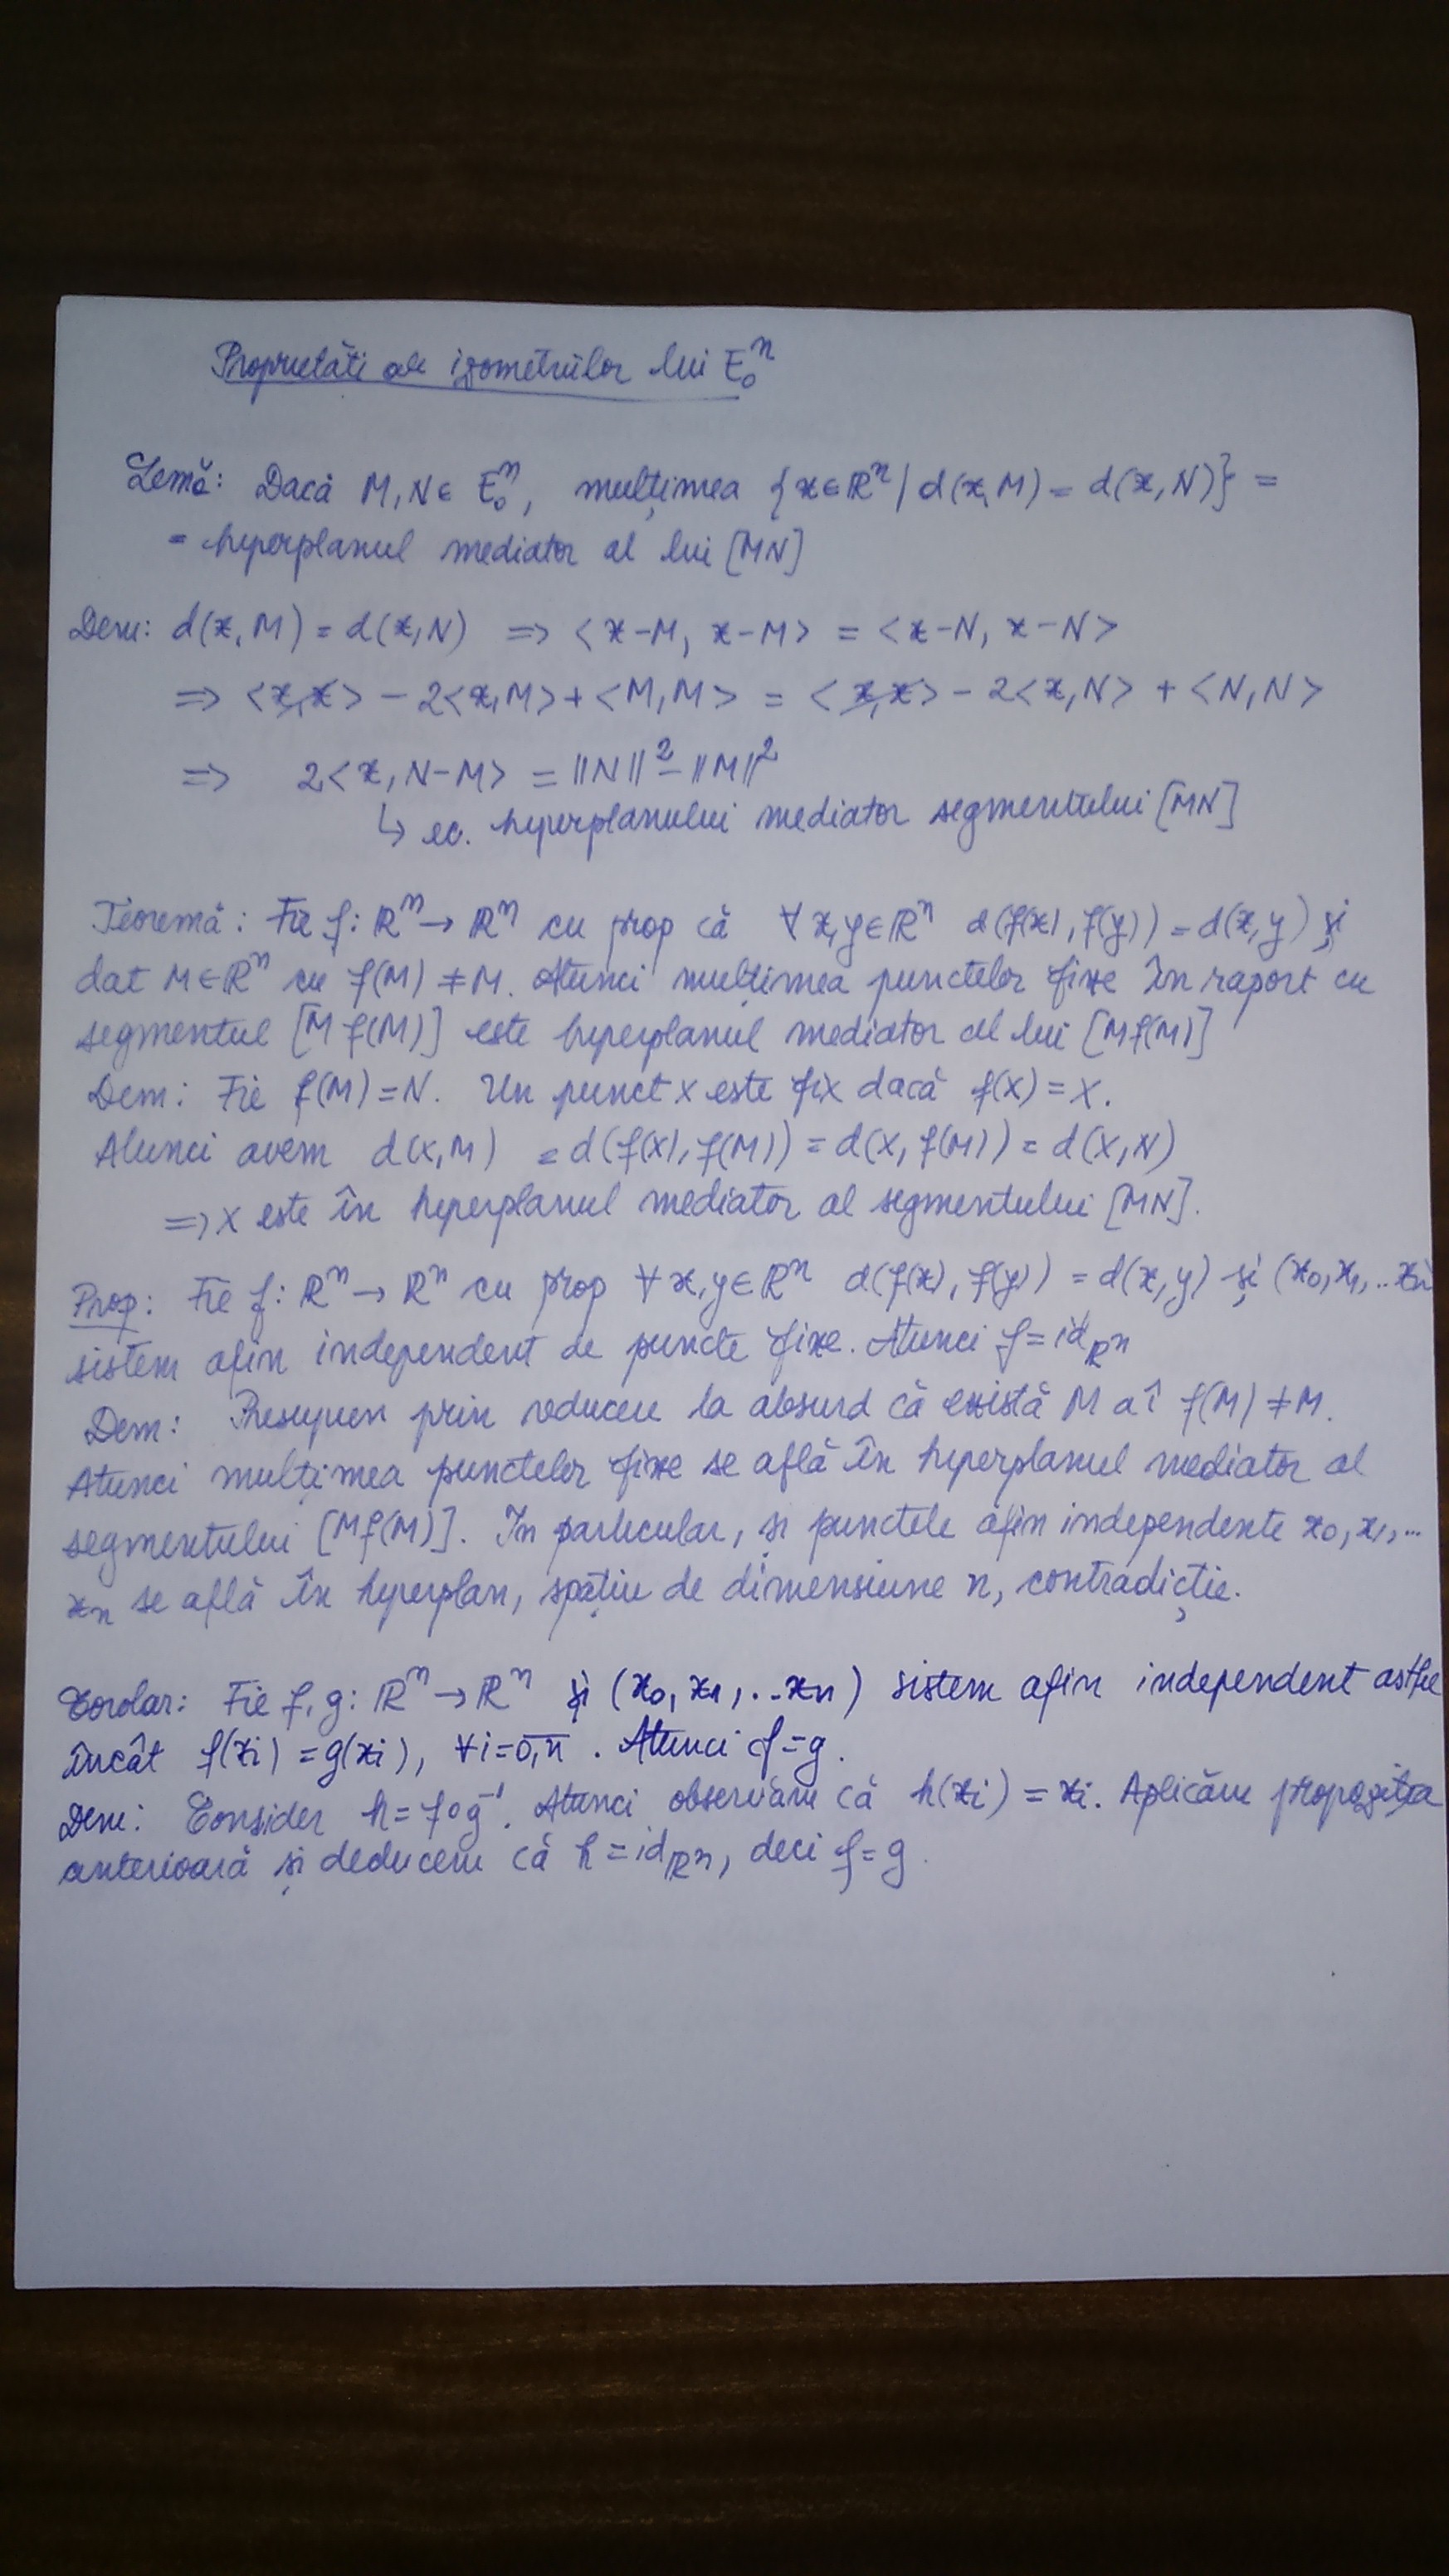 Proprietăți ale izometriilor lui E₀ⁿ
Lemă: Dacă M,N ∈ E₀ⁿ, mulțimea {x∈ℝⁿ | d(x,M) = d(x,N)} =
= hiperplanul mediator al lui [MN]
Dem: d(x,M) = d(x,N) => <x-M, x-M> = <x-N, x-N>
=> <x,x> - 2<x,M> + <M,M> = <x,x> - 2<x,N> + <N,N>
=> 2<x, N-M> = ||N||² - ||M||²
↳ ec. hiperplanului mediator segmentului [MN]
Teoremă: Fie f: ℝⁿ → ℝⁿ cu prop că ∀ x,y∈ℝⁿ d(f(x), f(y)) = d(x,y) și
dat M∈ℝⁿ cu f(M) ≠ M. Atunci mulțimea punctelor fixe în raport cu
segmentul [M f(M)] este hiperplanul mediator al lui [M f(M)]
Dem: Fie f(M) = N. Un punct X este fix dacă f(X) = X.
Atunci avem d(X,M) = d(f(X), f(M)) = d(X, f(M)) = d(X,N)
=> X este în hiperplanul mediator al segmentului [MN].
Prop: Fie f: ℝⁿ → ℝⁿ cu prop ∀ x,y∈ℝⁿ d(f(x), f(y)) = d(x,y) și (x₀, x₁, ..xₙ)
sistem afin independent de puncte fixe. Atunci f = id_ℝⁿ
Dem: Presupun prin reducere la absurd că există M aî f(M) ≠ M.
Atunci mulțimea punctelor fixe se află în hiperplanul mediator al
segmentului [M f(M)]. În particular, și punctele afin independente x₀, x₁, ...
xₙ se află în hiperplan, spațiu de dimensiune n, contradicție.
Corolar: Fie f, g: ℝⁿ → ℝⁿ și (x₀, x₁, ..xₙ) sistem afin independent astfel
încât f(xᵢ) = g(xᵢ), ∀ i=0,n. Atunci f = g.
Dem: Consider h = f∘g⁻¹. Atunci observăm că h(xᵢ) = xᵢ. Aplicăm propoziția
anterioară și deducem că h = id_ℝⁿ, deci f = g.